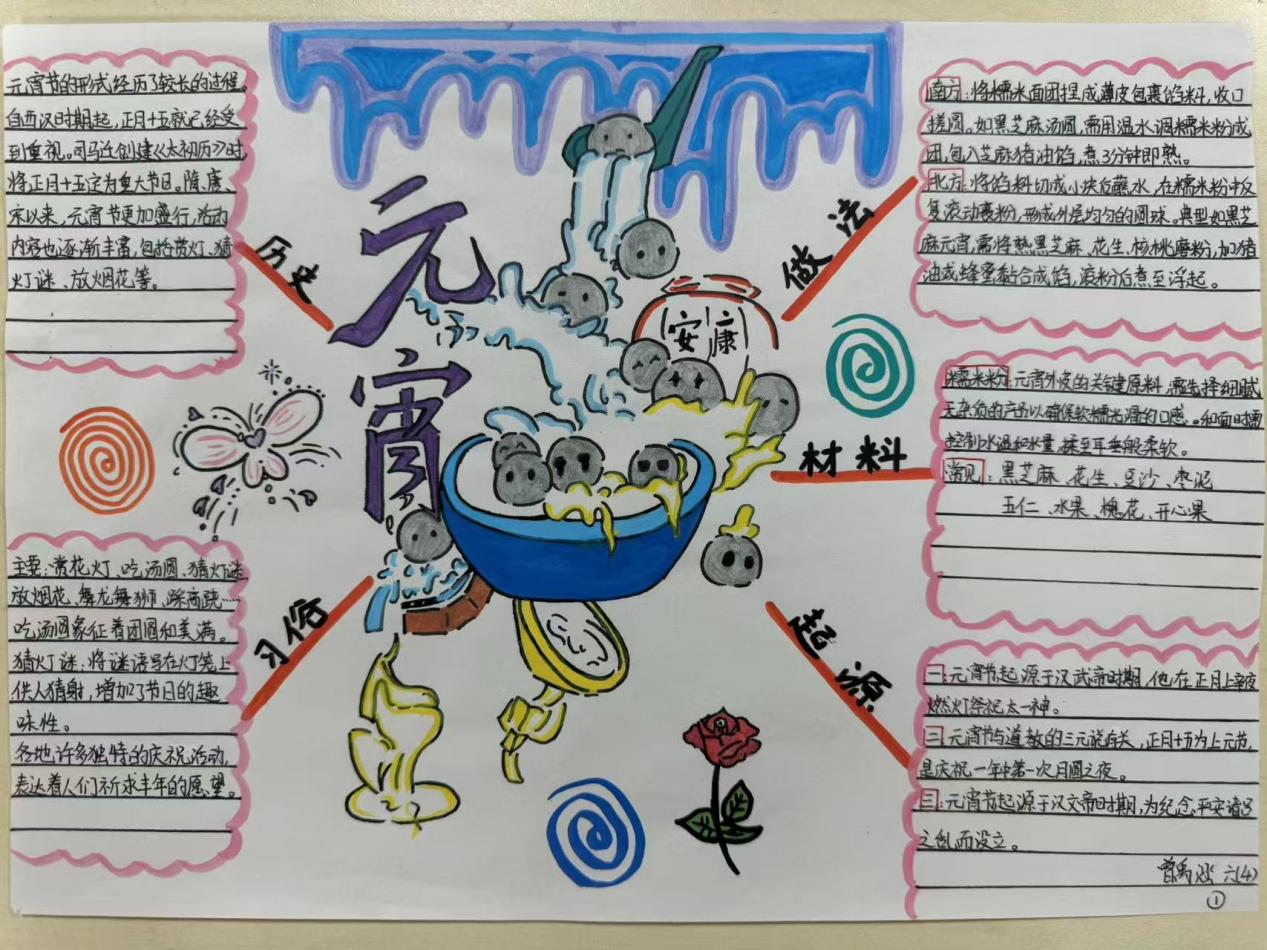 元宵节的形式经历了较长的过程。
自西汉时期起,正月十五就已经受
到重视。司马迁创建《太初历》时
将正月十五定为重大节日。隋、唐、
宋以来,元宵节更加盛行,活动
内容也逐渐丰富,包括赏灯、猜
灯谜、放烟花等。
历史
元
宵
安康
做法
南方:将糯米面团捏成薄皮包裹馅料,收口
搓圆。如黑芝麻汤圆,需用温水调糯米粉成
团,包入芝麻猪油馅,煮3分钟即熟。
北方:将馅料切成小块后蘸水,在糯米粉中反
复滚动裹粉,形成外层均匀的圆球。典型如黑芝
麻元宵,需将熟黑芝麻、花生、核桃磨粉,加猪
油或蜂蜜黏合成馅,滚粉后煮至浮起。
材料
糯米粉:元宵外皮的关键原料,需选择细腻
无杂质的产品以确保软糯光滑的口感。和面时需
控制水温和水量,揉至耳垂般柔软。
常见:黑芝麻、花生、豆沙、枣泥
五仁、水果、槐花、开心果
习俗
主要:赏花灯、吃汤圆、猜灯谜
放烟花、舞龙舞狮、踩高跷……
吃汤圆象征着团圆和美满。
猜灯谜:将谜语写在灯笼上
供人猜射,增加了节日的趣
味性。
各地许多独特的庆祝活动,
表达着人们祈求丰年的愿望。
起源
一:元宵节起源于汉武帝时期,他在正月上辛夜
燃灯祭祀太一神。
二:元宵节与道教的三元说有关,正月十五为上元节,
是庆祝一年中第一次月圆之夜。
三:元宵节起源于汉文帝时期,为纪念平安诸吕
之乱而设立。
曾禹 六(4)
①